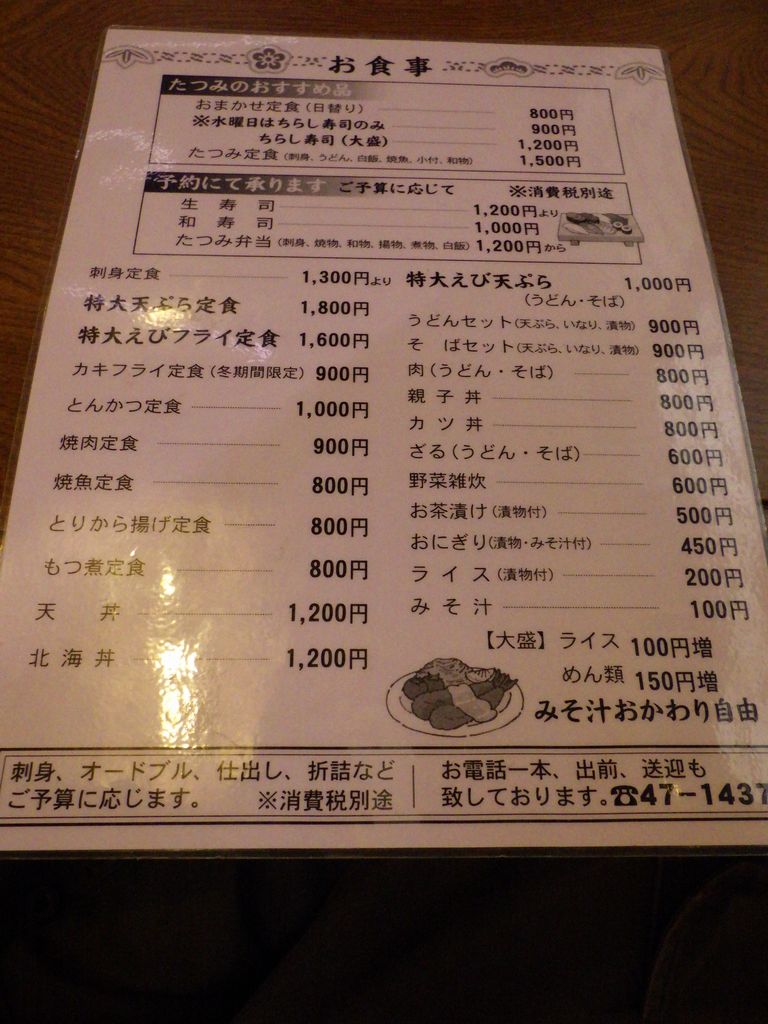 お食事
たつみのおすすめ品
おまかせ定食(日替り) 800円
※水曜日はちらし寿司のみ 900円
ちらし寿司(大盛) 1,200円
たつみ定食(刺身、うどん、白飯、焼魚、小付、和物) 1,500円
ご予約にて承ります ご予算に応じて ※消費税別途
生寿司 1,200円より
和寿司 1,000円
たつみ弁当(刺身、焼物、和物、揚物、煮物、白飯) 1,200円から
刺身定食 1,300円より
特大天ぷら定食 1,800円
特大えびフライ定食 1,600円
カキフライ定食(冬期間限定) 900円
とんかつ定食 1,000円
焼肉定食 900円
焼魚定食 800円
とりから揚げ定食 800円
もつ煮定食 800円
天丼 1,200円
北海丼 1,200円
特大えび天ぷら 1,000円
(うどん・そば)
うどんセット(天ぷら、いなり、漬物) 900円
そばセット(天ぷら、いなり、漬物) 900円
肉(うどん・そば) 800円
親子丼 800円
カツ丼 800円
ざる(うどん・そば) 600円
野菜雑炊 600円
お茶漬け(漬物付) 500円
おにぎり(漬物・みそ汁付) 450円
ライス(漬物付) 200円
みそ汁 100円
【大盛】ライス 100円増
めん類 150円増
みそ汁おかわり自由
刺身、オードブル、仕出し、折詰など
ご予算に応じます。 ※消費税別途
お電話一本、出前、送迎も
致しております。☎47-1437